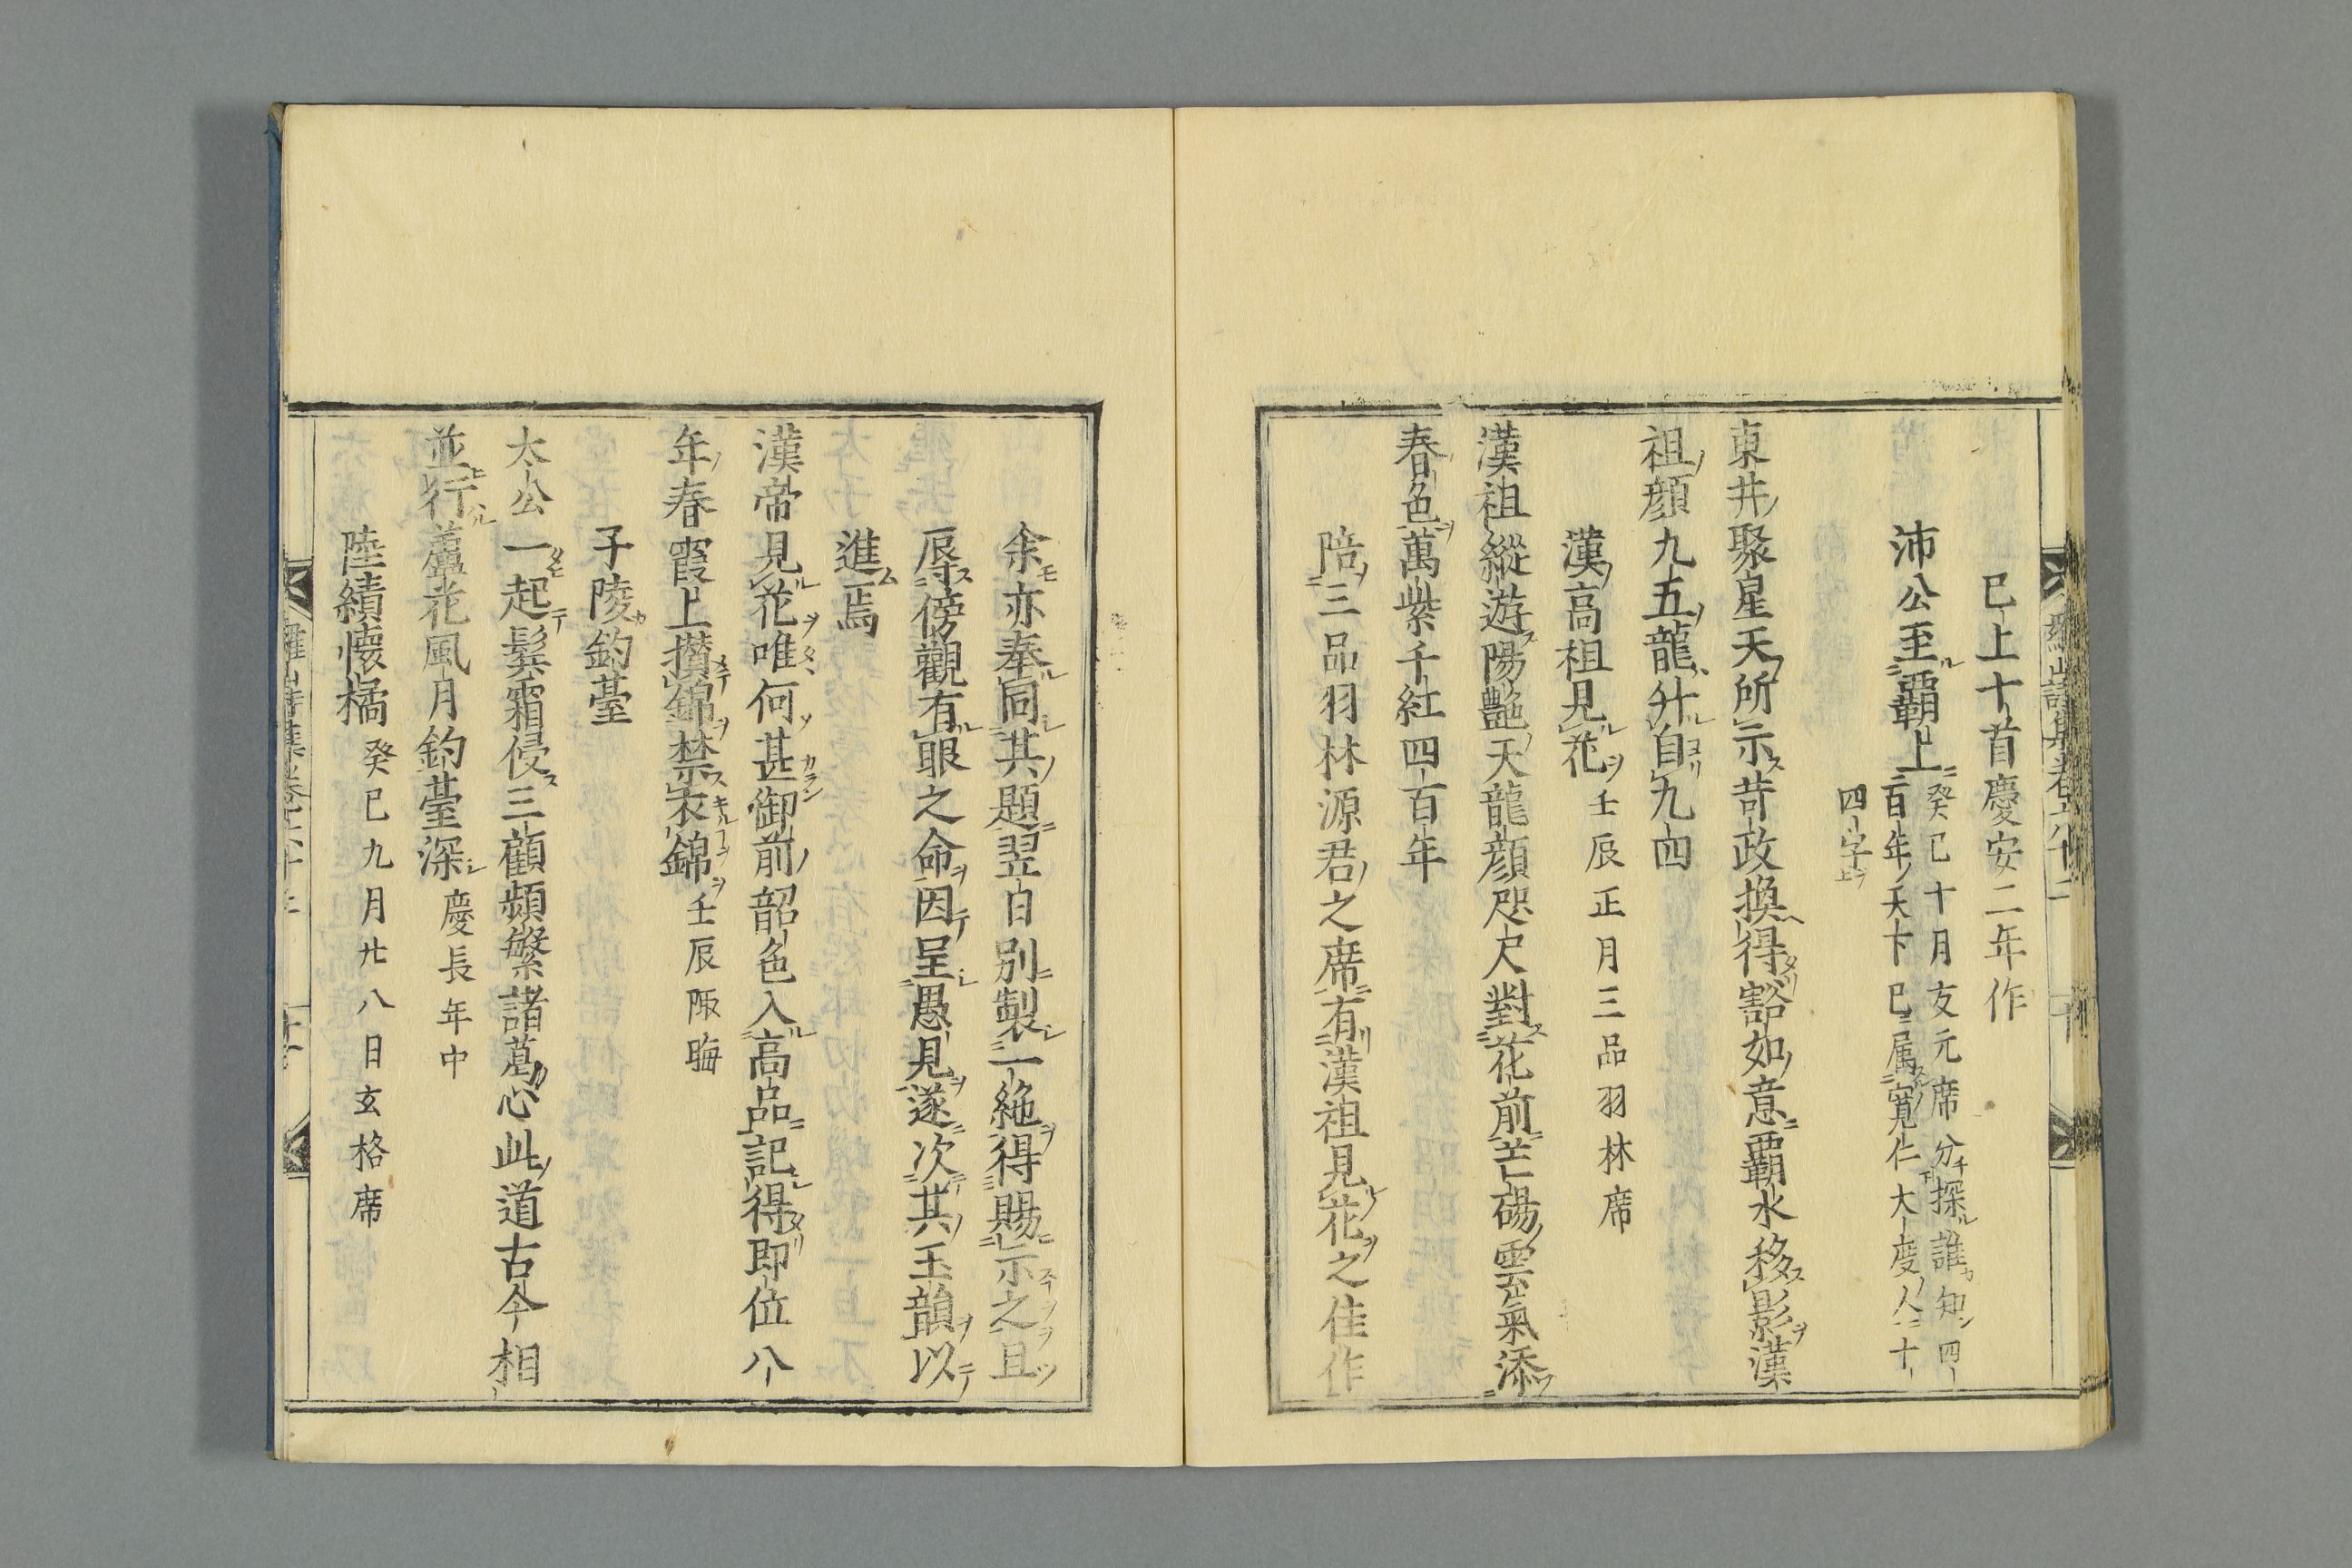 已上十首慶安二年作
沛公至覇上
癸巳十月友元席分探誰知四
百年天下已属寬仁大度人十
四字
東井聚星天所示苛政換得豁如意覇水移影漢
祖顔九五龍升自九四
漢高祖見花壬辰正月三品羽林席
漢祖縱遊陽艶天龍顔咫尺對花前芒碭雲氣添
春色萬紫千紅四百年
陪三品羽林源君之席有漢祖見花之佳作
余亦奉同其題翌日別製一絶得賜示之且
辱傍觀有眼之命因呈愚見遂次其玉韻以
進焉
漢帝見花唯何甚御前韶色入高品記得即位八
年春霞上攅錦禁衣錦壬辰陬晦
子陵釣臺
太公一起鬂霜侵三顧頻繁諸葛心此道古今相
並行蘆花風月釣臺深慶長年中
陸績懐橘癸巳九月廿八日玄格席